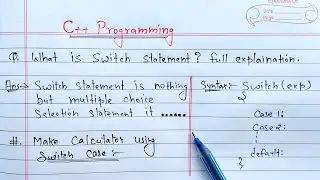 C++ Programming
Q. What is Switch Statement? full explaination.
Ans→ Switch statement is nothing
but multiple choice
Selection statement it ......
#. Make Calculator using
Switch Case :-
Syntax:- Switch(exp)
{
Case 1:
Case 2:
default:
}